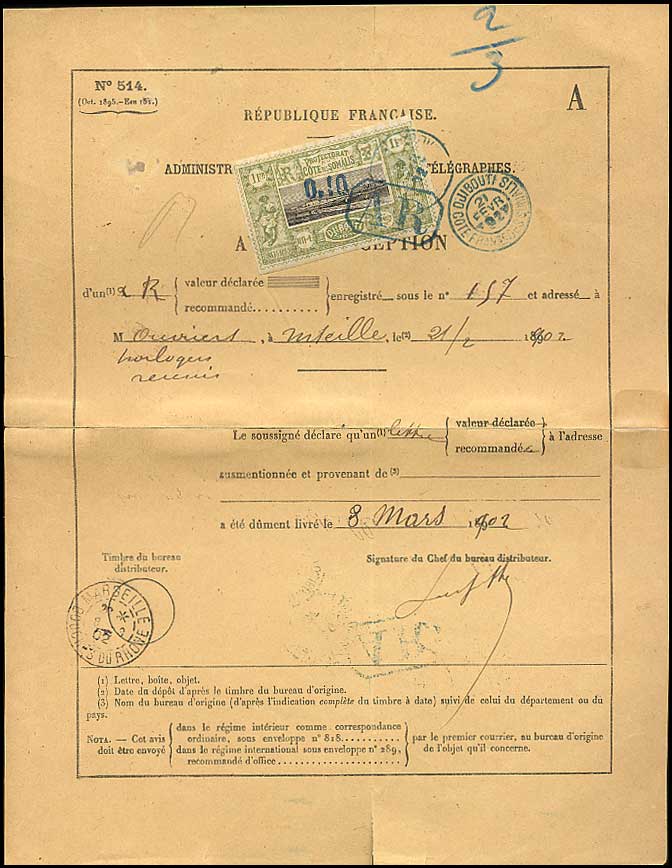 2/3
N° 514.
(Oct. 1895.—
A
RÉPUBLIQUE FRANÇAISE.
ADMINISTR TÉLÉGRAPHES.
1 FR PROTECTORAT DE LA CÔTE DES SOMALIS 1 FR
0,10
AR
DJIBOUTI
21 FÉVR
A CEPTION
d'un (1) R { valeur déclarée
recommandé.......... } enregistré sous le n° 157 et adressé à
M Ouvriers, à Mseille, le (2) 21/2 1902
horlogers
reunis
Le soussigné déclare qu'un (1) lettre { valeur déclarée
recommandée } à l'adresse
susmentionnée et provenant de (3)
a été dûment livré le 8 Mars 1902
Timbre du bureau
distributeur.
Signature du Chef du bureau distributeur.
MARSEILLE
02
BOUCHES DU RHONE
(1) Lettre, boîte, objet.
(2) Date du dépôt d'après le timbre du bureau d'origine.
(3) Nom du bureau d'origine (d'après l'indication complète du timbre à date) suivi de celui du département ou du
pays.
NOTA. — Cet avis doit être envoyé { dans le régime intérieur comme correspondance
ordinaire, sous enveloppe n° 818...........
dans le régime international sous enveloppe n° 289,
recommandé d'office............ } par le premier courrier, au bureau d'origine
de l'objet qu'il concerne.